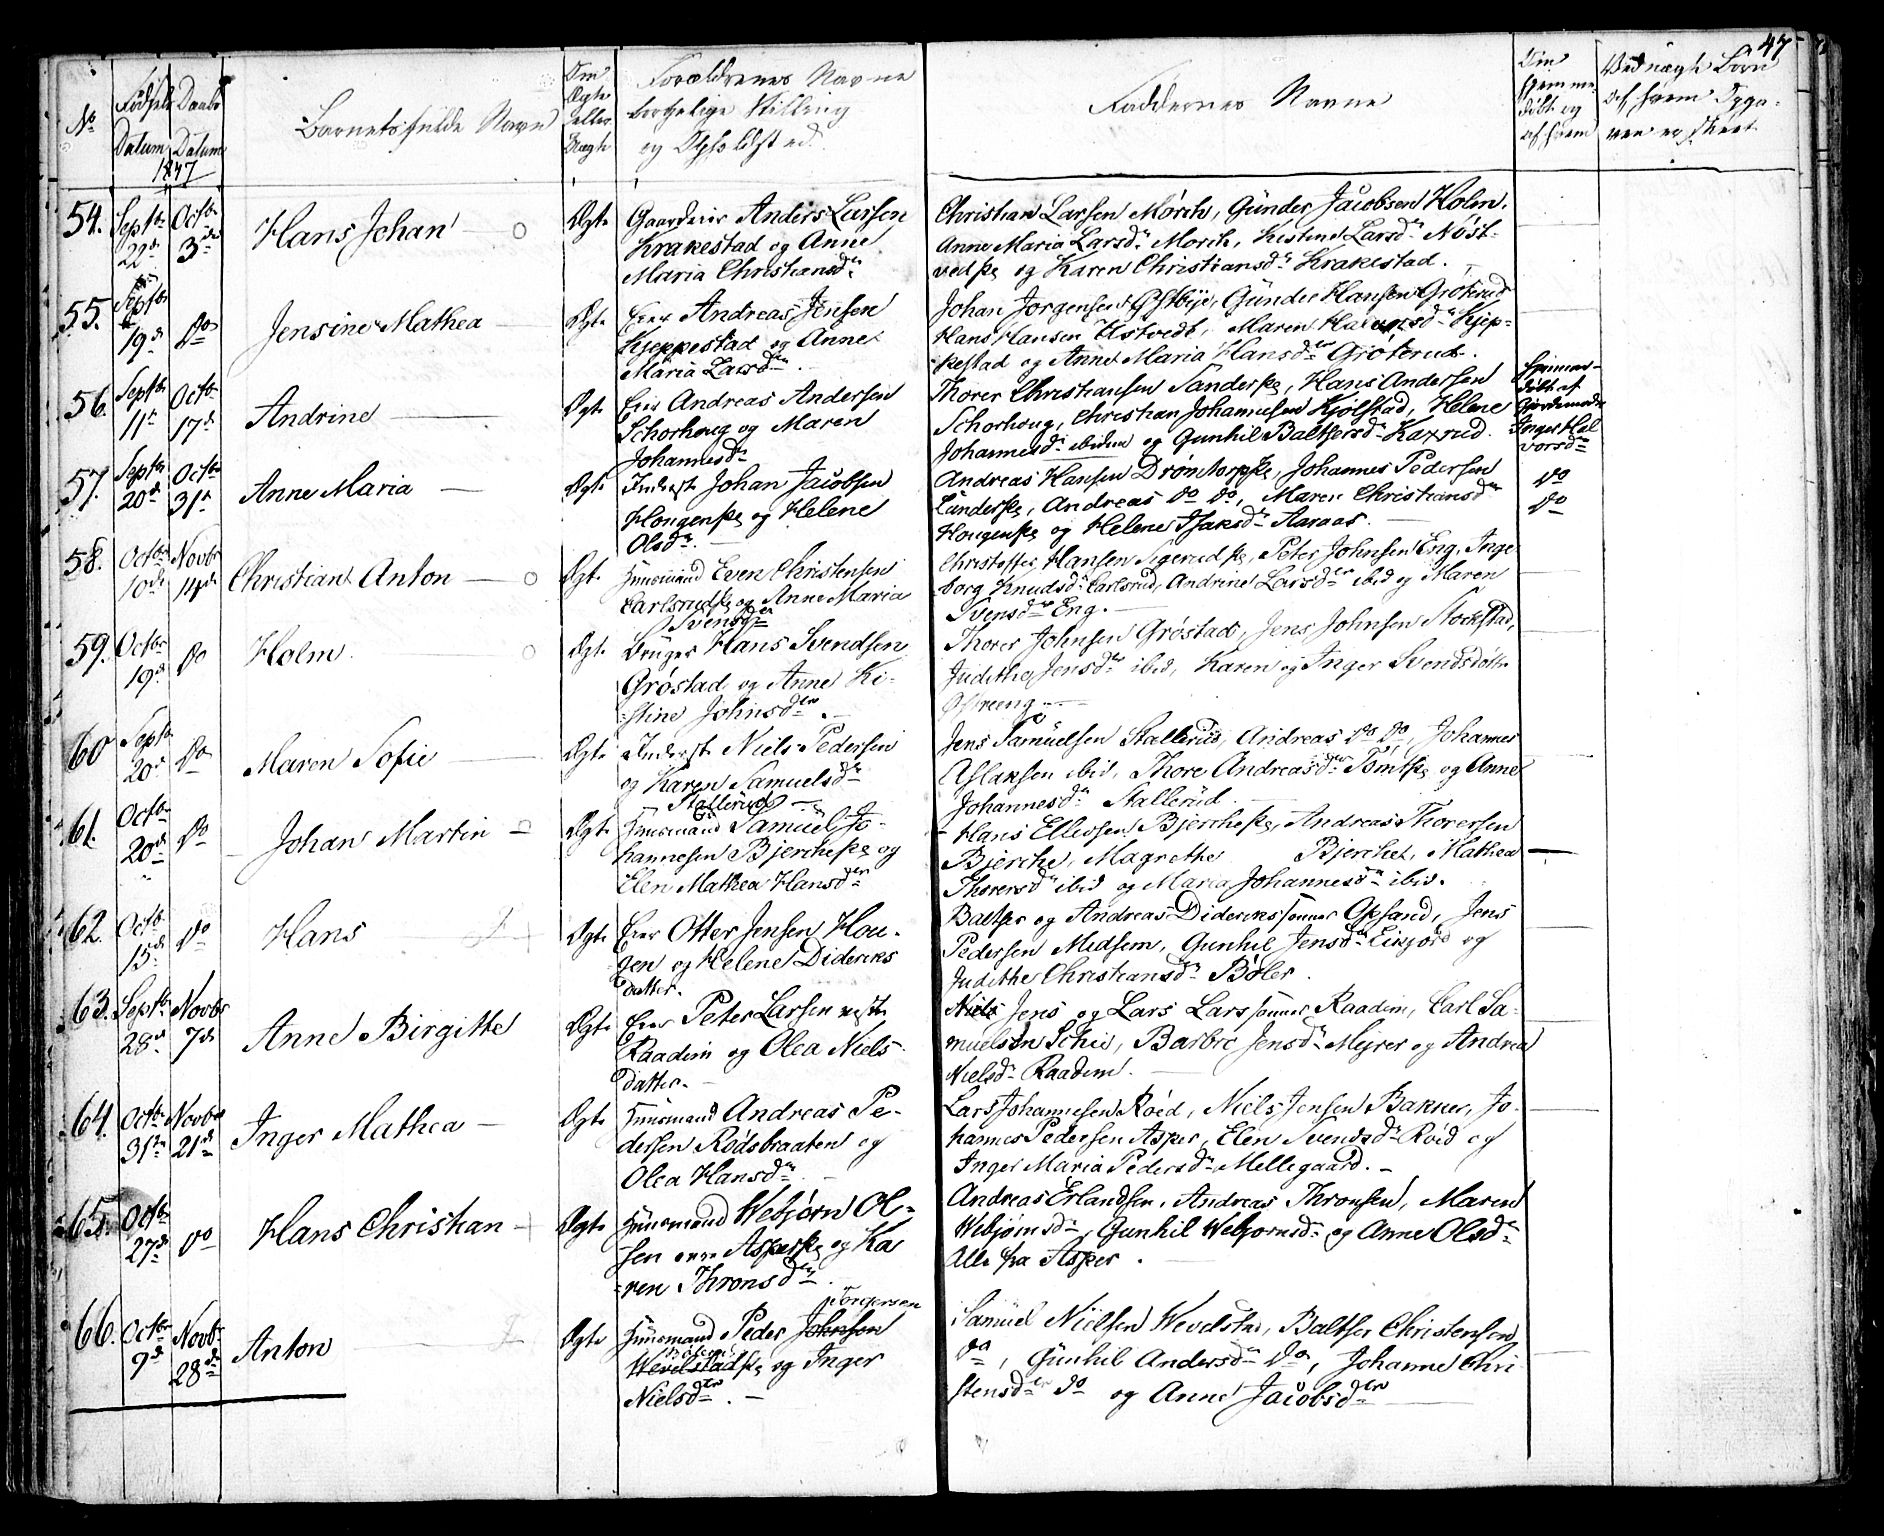 47
No
Fødsels Daabs
Datum Datum
1847
Barnets fulde Navn
Om
Ægte
eller
Uægte
Forældrenes Navne
borgelige Stilling
og Opholdsted.
Faddernes Navne
Om
hjemme
døbt og
af hvem
Ved uægte Børn
af hvem Opga-
ven er skeet
54. Septbr 22de Octbr 3die
Hans Johan
Ægte
Gaardeier Anders Larsen
Krakestad og Anne
Maria Christiansdr
Christian Larsen Mørch, Günder Jacobsen Holm,
Anne Maria Larsdr Morch, Kistine Larsdr Nøst-
vedhe og Karen Christiansdr Krakestad.
55. Septbr 19de Do
Jensine Mathea
Ægte
Eier Andreas Jensen
Kjeppestad og Anne
Maria Larsdtr
Johan Jorgensen Østbye, Günder Hansen Grøterud
Hans Hansen Østvedt, Maren Hansdr Kjep-
pestad og Anne Maria Hansdtr Grøterud.
56. Septbr 11te Octbr 17de
Andrine
Ægte
Eier Andreas Andersen
Schorhoug og Maren
Johannesdr
Thorer Christiansen Sanderhe, Hans Andersen
Schorhoug, Christian Johannesen Kjølstad, Helene
Johannesdr ibidem og Gunhil Baltsersdr Kaxrud.
Hjemme-
døbt af
Gjordemoder
Inger Hal
vorsdr
57. Septbr 20de Octbr 31te
Anne Maria
Ægte
Inderst Johan Jacobsen
Hougenhe og Helene
Olsdr.
Andreas Hansen Drømtorphe, Johannes Pedersen
Sanderhe, Andreas Do Do, Maren Christiansdr
Hougenhe og Helene Isaksdr Aaraas.
Do
Do
58. Octbr 10de Novbr 14de
Christian Anton
Ægte
Huusmand Even Christensen
Carlsrudhe og Anne Maria
Svensdtr
Christoffer Hansen Sigerudhe, Peter Johnsen Eng, Inge-
borg Knudsdr Carlsrud, Andrine Larsdtr ibid og Maren
Svensdtr Eng.
59. Octbr 19de Do
Holm
Ægte
Bruger Hans Svendsen
Grøstad og Anne Ki-
stine Johnsdtr.
Thorer Johnsen Grøstad, Jens Johnsen Stokstad,
Judithe Jensdtr ibid, Karen og Inger Svendsdøttr
60 Septbr 20de Do
Maren Sofie
Ægte
Inderst Niels Pedersen
og Karen Samuelsdr
Stallerud
Jens Samuelsen Stallerud, Andreas Do Do, Johannes
Aslaksen ibid, Thore Andreasdtr Tomthe og Anne
Johannesdr Stallerud.
61. Octbr 20de Do
Johan Martin
Ægte
Huusmand Samuel Jo-
hannesen Bjerchehe og
Elen Mathea Hansdtr
Hans Ellevsen Bjerchehe, Andreas Thorersen
Bjerche, Magrethe Bjerche, Mathea
Thorersdr ibid og Maria Johannesdr ibid.
62 Octbr 15de Do
Hans
Ægte
Eier Otter Jensen Hou-
gen og Helene Dideriks
datter.
Baltser og Andreas Dideriks sønner Opsand, Jens
Pedersen Midsem, Gunhil Jensdtr Eikjord og
Judithe Christiansdr Bøler.
63. Septbr 28de Novbr 7de
Anne Birgitte
Ægte
Eier Peter Larsen vestre
Raadim og Olea Niels
datter.
Niels Jens og Lars Lars sønner Raadim, Carl Sa-
muelsen Schie, Barbro Jensdr Mejrer og Andrea
Nielsdr Raadim.
64. Octbr 31te Novbr 21de
Inger Mathea
Ægte
Huusmand Andreas Pe-
dersen Rødsbraaten og
Olea Hansdr
Lars Johannesen Roed, Niels Jensen Bakker, Jo-
hannes Pedersen Asper, Elen Svendsdr Roed og
Inger Maria Pedersdr Mellegaard.
65. Octbr 27de Do
Hans Christian
Ægte
Huusmand Webjørn Ol-
sen Asperhe og Ka
ren Thronsdtr
Andreas Erlandsen, Andreas Thronsen, Maren
Webjørnsdr, Gunhil Webjornsdr og Anne Olsdr
Alle fra Asper.
66. Octbr 9de Novbr 28de
Anton
Ægte
Torgersen
Huusmand Peder Johnson
Wevelstadhe og Inger
Nielsdtr.
Samuel Nielsen Wevelstad, Baltser Christensen
Do, Günhil Andersdr Do, Johanne Chri
stensdtr Do og Anne Jacobsdtr